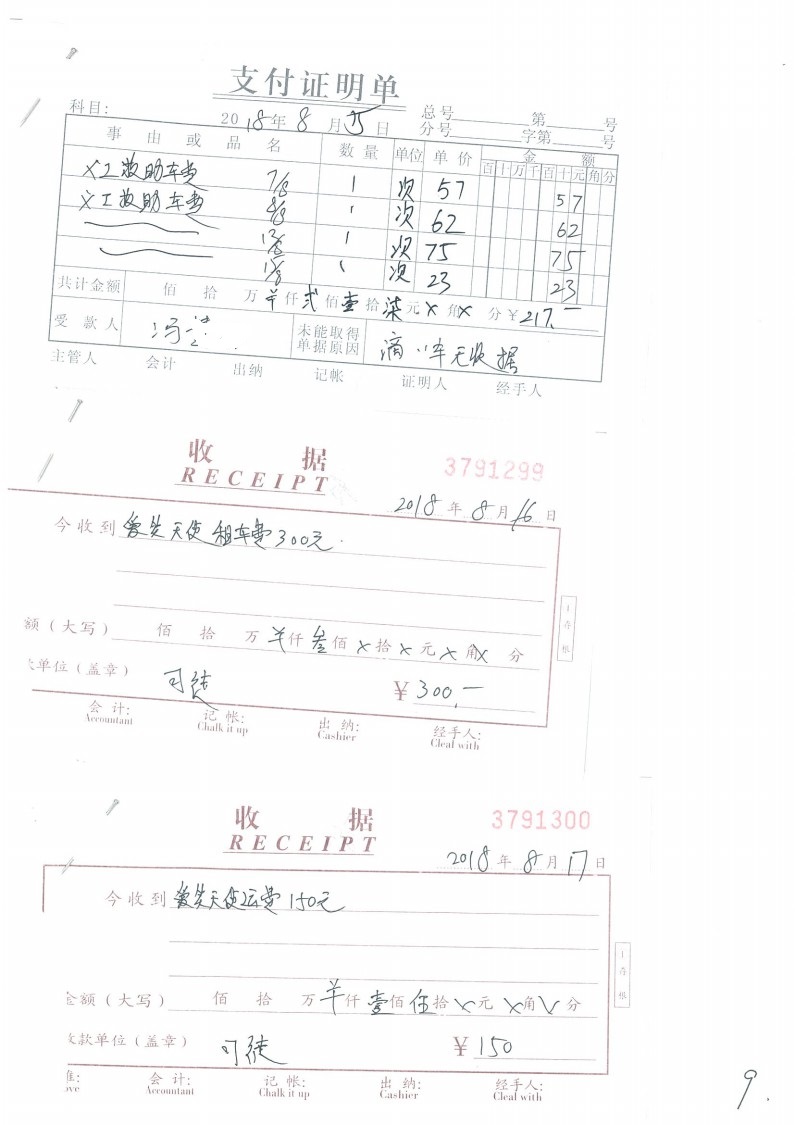 支付证明单
科目: 2018年8月25日 总号 第 号
分号 字第 号
事由或品名 数量 单位 单价 金额
百十万千百十元角分
义工救助车费 7/8 1 次 57 57
义工救助车费 8/8 1 次 62 62
12/8 1 次 75 75
15/8 1 次 23 23
共计金额 佰 拾 万 仟 弍 佰 壹 拾 柒 元 X 角 X 分 ¥ 217.-
受款人 冯 未能取得单据原因 滴 车无收据
主管人 会计 出纳 记帐 证明人 经手人
收据 3791299
RECEIPT
2018年8月16日
今收到 天使租车费300元.
额(大写) 佰 拾 万 仟 叁 佰 X 拾 X 元 X 角 X 分
单位(盖章) 司徒 ¥ 300.-
会计: 记帐: 出纳: 经手人:
Accountant Chalk it up Cashier Cleal with
收据 3791300
RECEIPT
2018年8月17日
今收到 天使运费150元
金额(大写) 佰 拾 万 仟 壹 佰 伍 拾 X 元 X 角 X 分
收款单位(盖章) 司徒 ¥ 150
准: 会计: 记帐: 出纳: 经手人:
ove Accountant Chalk it up Cashier Cleal with
9.